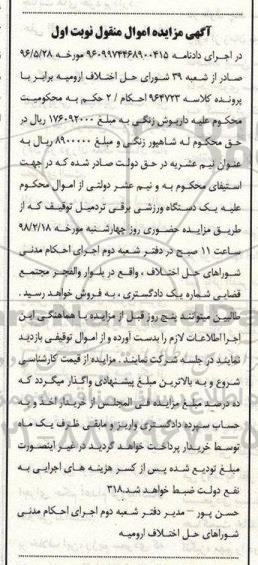 آگهی مزایده اموال منقول نوبت اول
در اجرای دادنامه ۹۶۰۹۹۷۴۴۶۸۹۰۰۴۱۵ مورخه ۹۶/۵/۲۸
صادر از شعبه ۳۹ شورای حل اختلاف ارومیه برابر با
پرونده کلاسه ۹۶۴۷۲۳ احکام / ۲ حکم به محکومیت
محکوم علیه داریوش زنگی به مبلغ ۱۷۶۰۹۲۰۰۰ ریال در
حق محکوم له شاهپور زنگی و مبلغ ۸۹۰۰۰۰۰ ریال به
عنوان نیم عشریه در حق دولت صادر شده که در جهت
استیفای محکوم به و نیم عشر دولتی از اموال محکوم
علیه یک دستگاه ورزشی برقی تردمیل توقیف که از
طریق مزایده حضوری روز چهارشنبه مورخه ۹۸/۲/۱۸
ساعت ۱۱ صبح در دفتر شعبه دوم اجرای احکام مدنی
شوراهای حل اختلاف ، واقع در بلوار والفجر مجتمع
قضایی شماره یک دادگستری ، به فروش خواهد رسید .
طالبین میتوانند پنج روز قبل از مزایده با هماهنگی این
اجرا اطلاعات لازم را بدست آورده و از اموال توقیفی بازدید
نمایند در جلسه شرکت نمایند . مزایده از قیمت کارشناسی
شروع و به بالاترین مبلغ پیشنهادی واگذار میگردد که
ده درصد مبلغ مزایده فی المجلس از خریدار اخذ و به
حساب سپرده دادگستری واریز و مابقی ظرف یک ماه
توسط خریدار پرداخت خواهد گردید در غیر اینصورت
مبلغ تودیع شده پس از کسر هزینه های اجرایی به
نفع دولت ضبط خواهد شد.۳۱۸
حسن پور – مدیر دفتر شعبه دوم اجرای احکام مدنی
شوراهای حل اختلاف ارومیه